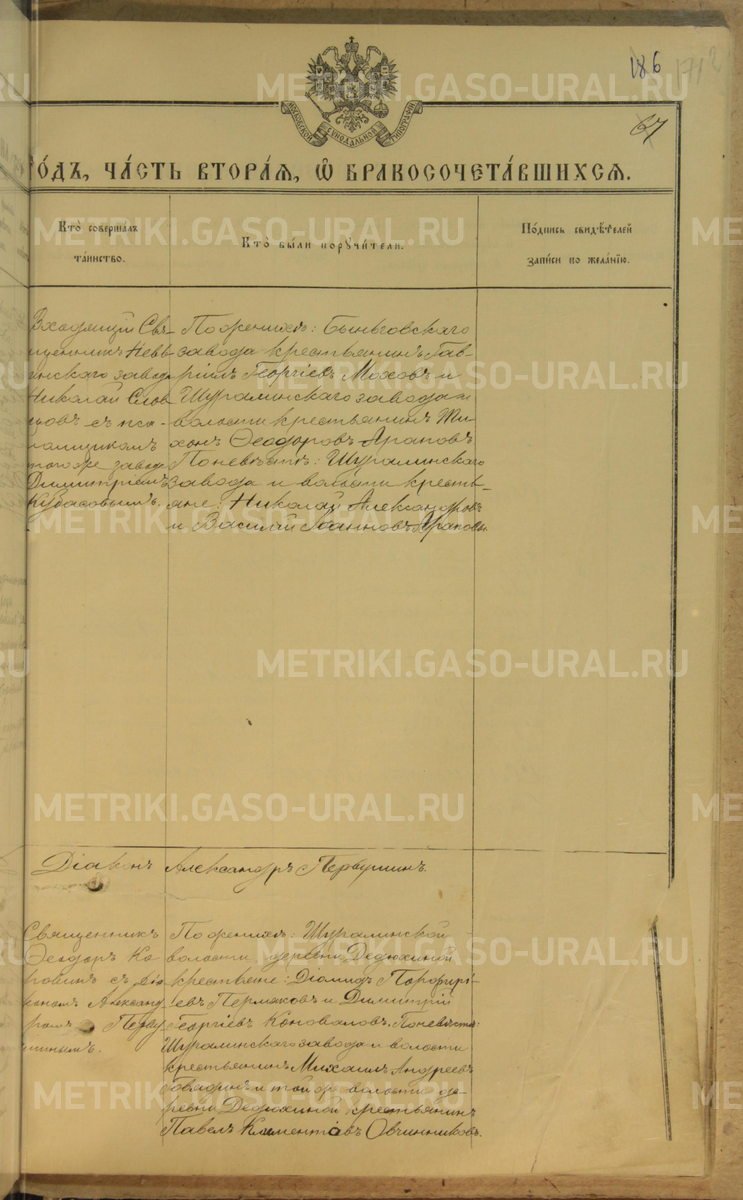 186 171 2
МОСКОВСКОЙ СѴНОДАЛЬНОЙ ТИПОГРАФІИ
67
ГО́ДЪ, ЧА́СТЬ ВТОРА́Я, Ѡ БРАКОСОЧЕТА́ВШИХСЯ.
Кто̀ соверша́лъ
та́инство.
Кто̀ бы́ли порꙋчи́тели.
По́дпись свидѣ́телей
за́писи по жела́нїю.
Входящій Свя-
щенникъ Невь
янскаго завода
Николай Слов
цовъ съ пса-
ломщикомъ
того же завода
Димитріемъ
Кубасовымъ.
По женихѣ: Быньговскаго
завода крестьянинъ Гав-
ріилъ Георгіевъ Моховъ и
Шуралинскаго завода и
волости крестьянинъ Ти-
хонъ Ѳеодоровъ Араповъ
По невѣстѣ: Шуралинскаго
завода и волости кресть-
яне: Николай Александровъ
и Василій Іоанновъ Араповы
Діаконъ Александръ Первушинъ.
Священникъ
Ѳеодоръ Ко
ровинъ съ діа
кономъ Александ
ромъ Перву
шинымъ.
По женихѣ: Шуралинской
волости деревни Дедюхиной
крестьяне: Діомидъ Порфирі-
евъ Пермяковъ и Димитрій
Георгіевъ Коноваловъ. По невѣстѣ:
Шуралинскаго завода и волости
крестьянинъ Михаилъ Андреевъ
и той же волости де-
ревни Дедюхиной крестьянинъ
Павелъ Климентіевъ Овчинниковъ.
METRIKI.GASO-URAL.RU